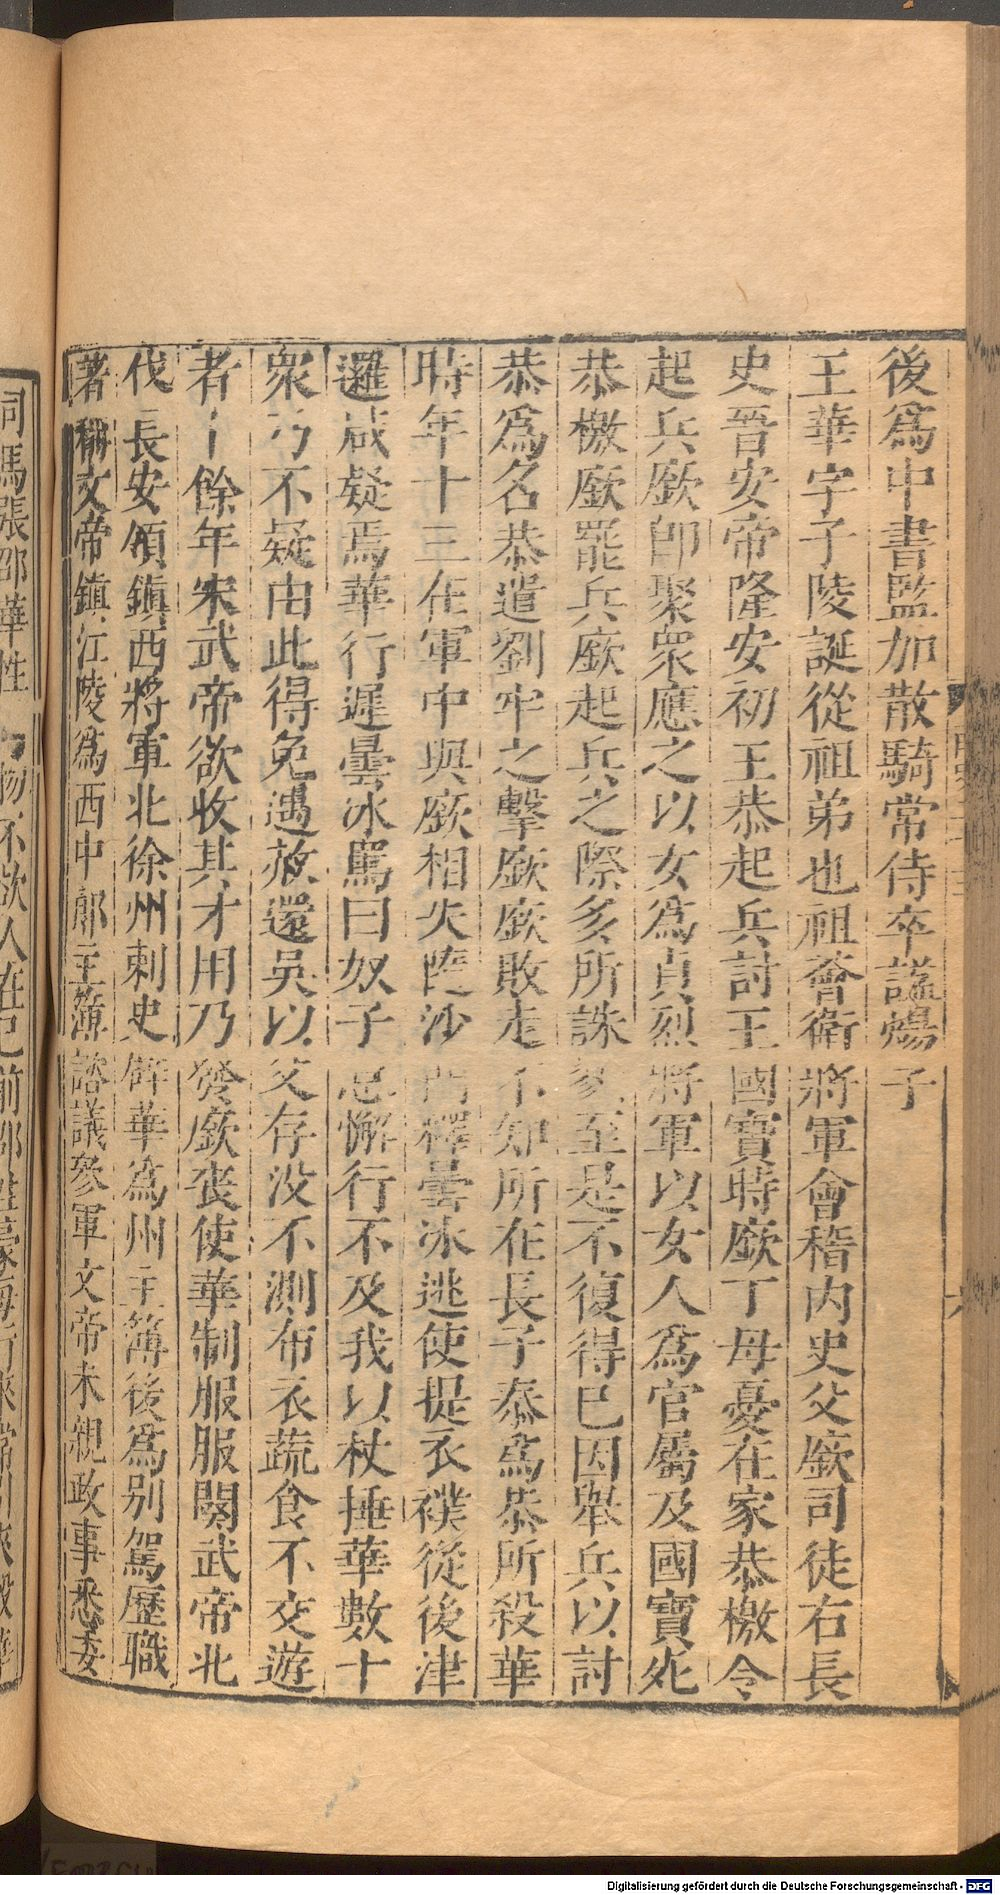 後爲中書監加散騎常侍卒謚煬子
王華字子陵誕從祖弟也祖薈衛將軍會稽内史父廞司徒右長
史晉安帝隆安初王恭起兵討王國寶時廞丁母憂在家恭檄令
起兵廞卽聚衆應之以女爲貞烈將軍以女人爲官屬及國寶死
恭檄廞罷兵廞起兵之際多所誅至是不復得已因舉兵以討
恭爲名恭遣劉牢之擊廞廞敗走不知所在長子泰爲恭所殺華
時年十三在軍中與廞相失隨沙門釋曇冰逃使提衣襆從後津
邏咸疑焉華行遲曇冰罵曰奴子怠懈行不及我以杖捶華數十
衆乃不疑由此得免遇赦還吳以父存没不測布衣蔬食不交遊
者十餘年宋武帝欲收其才用乃發廞喪使華制服服闋武帝北
伐長安領鎮西將軍北徐州刺史辟華爲州主簿後爲別駕歷職
著稱文帝鎮江陵爲西中郎主簿諮議參軍文帝未親政事悉委
司馬張邵華性物不欲人在己前邵性豪每行來常引夾轂華
Digitalisierung gefördert durch die Deutsche Forschungsgemeinschaft - DFG